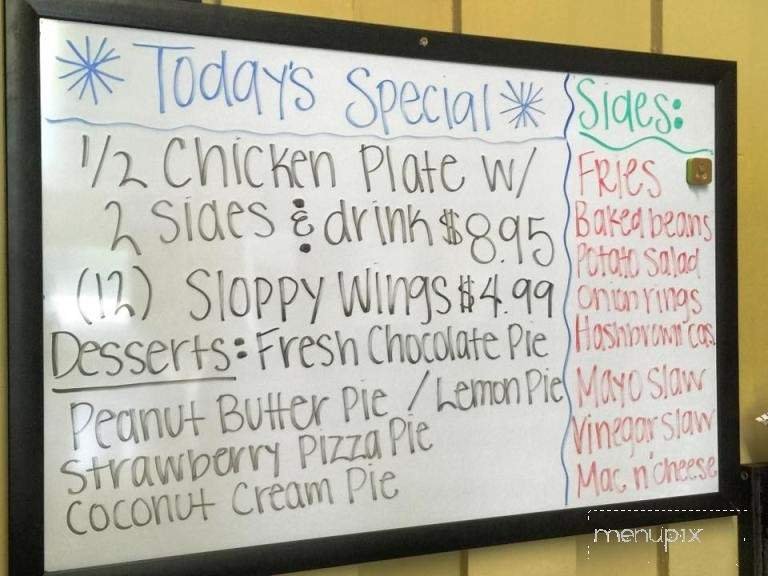 Today's Special
1/2 Chicken Plate w/
2 sides & drink $8.95
(12) Sloppy Wings $4.99
Desserts: Fresh Chocolate Pie
Peanut Butter Pie / Lemon Pie
Strawberry Pizza Pie
Coconut Cream Pie
Sides:
Fries
Baked beans
Potato Salad
Onion rings
Hashbrown cas
Mayo Slaw
Vinegar Slaw
Mac n' cheese
menupix